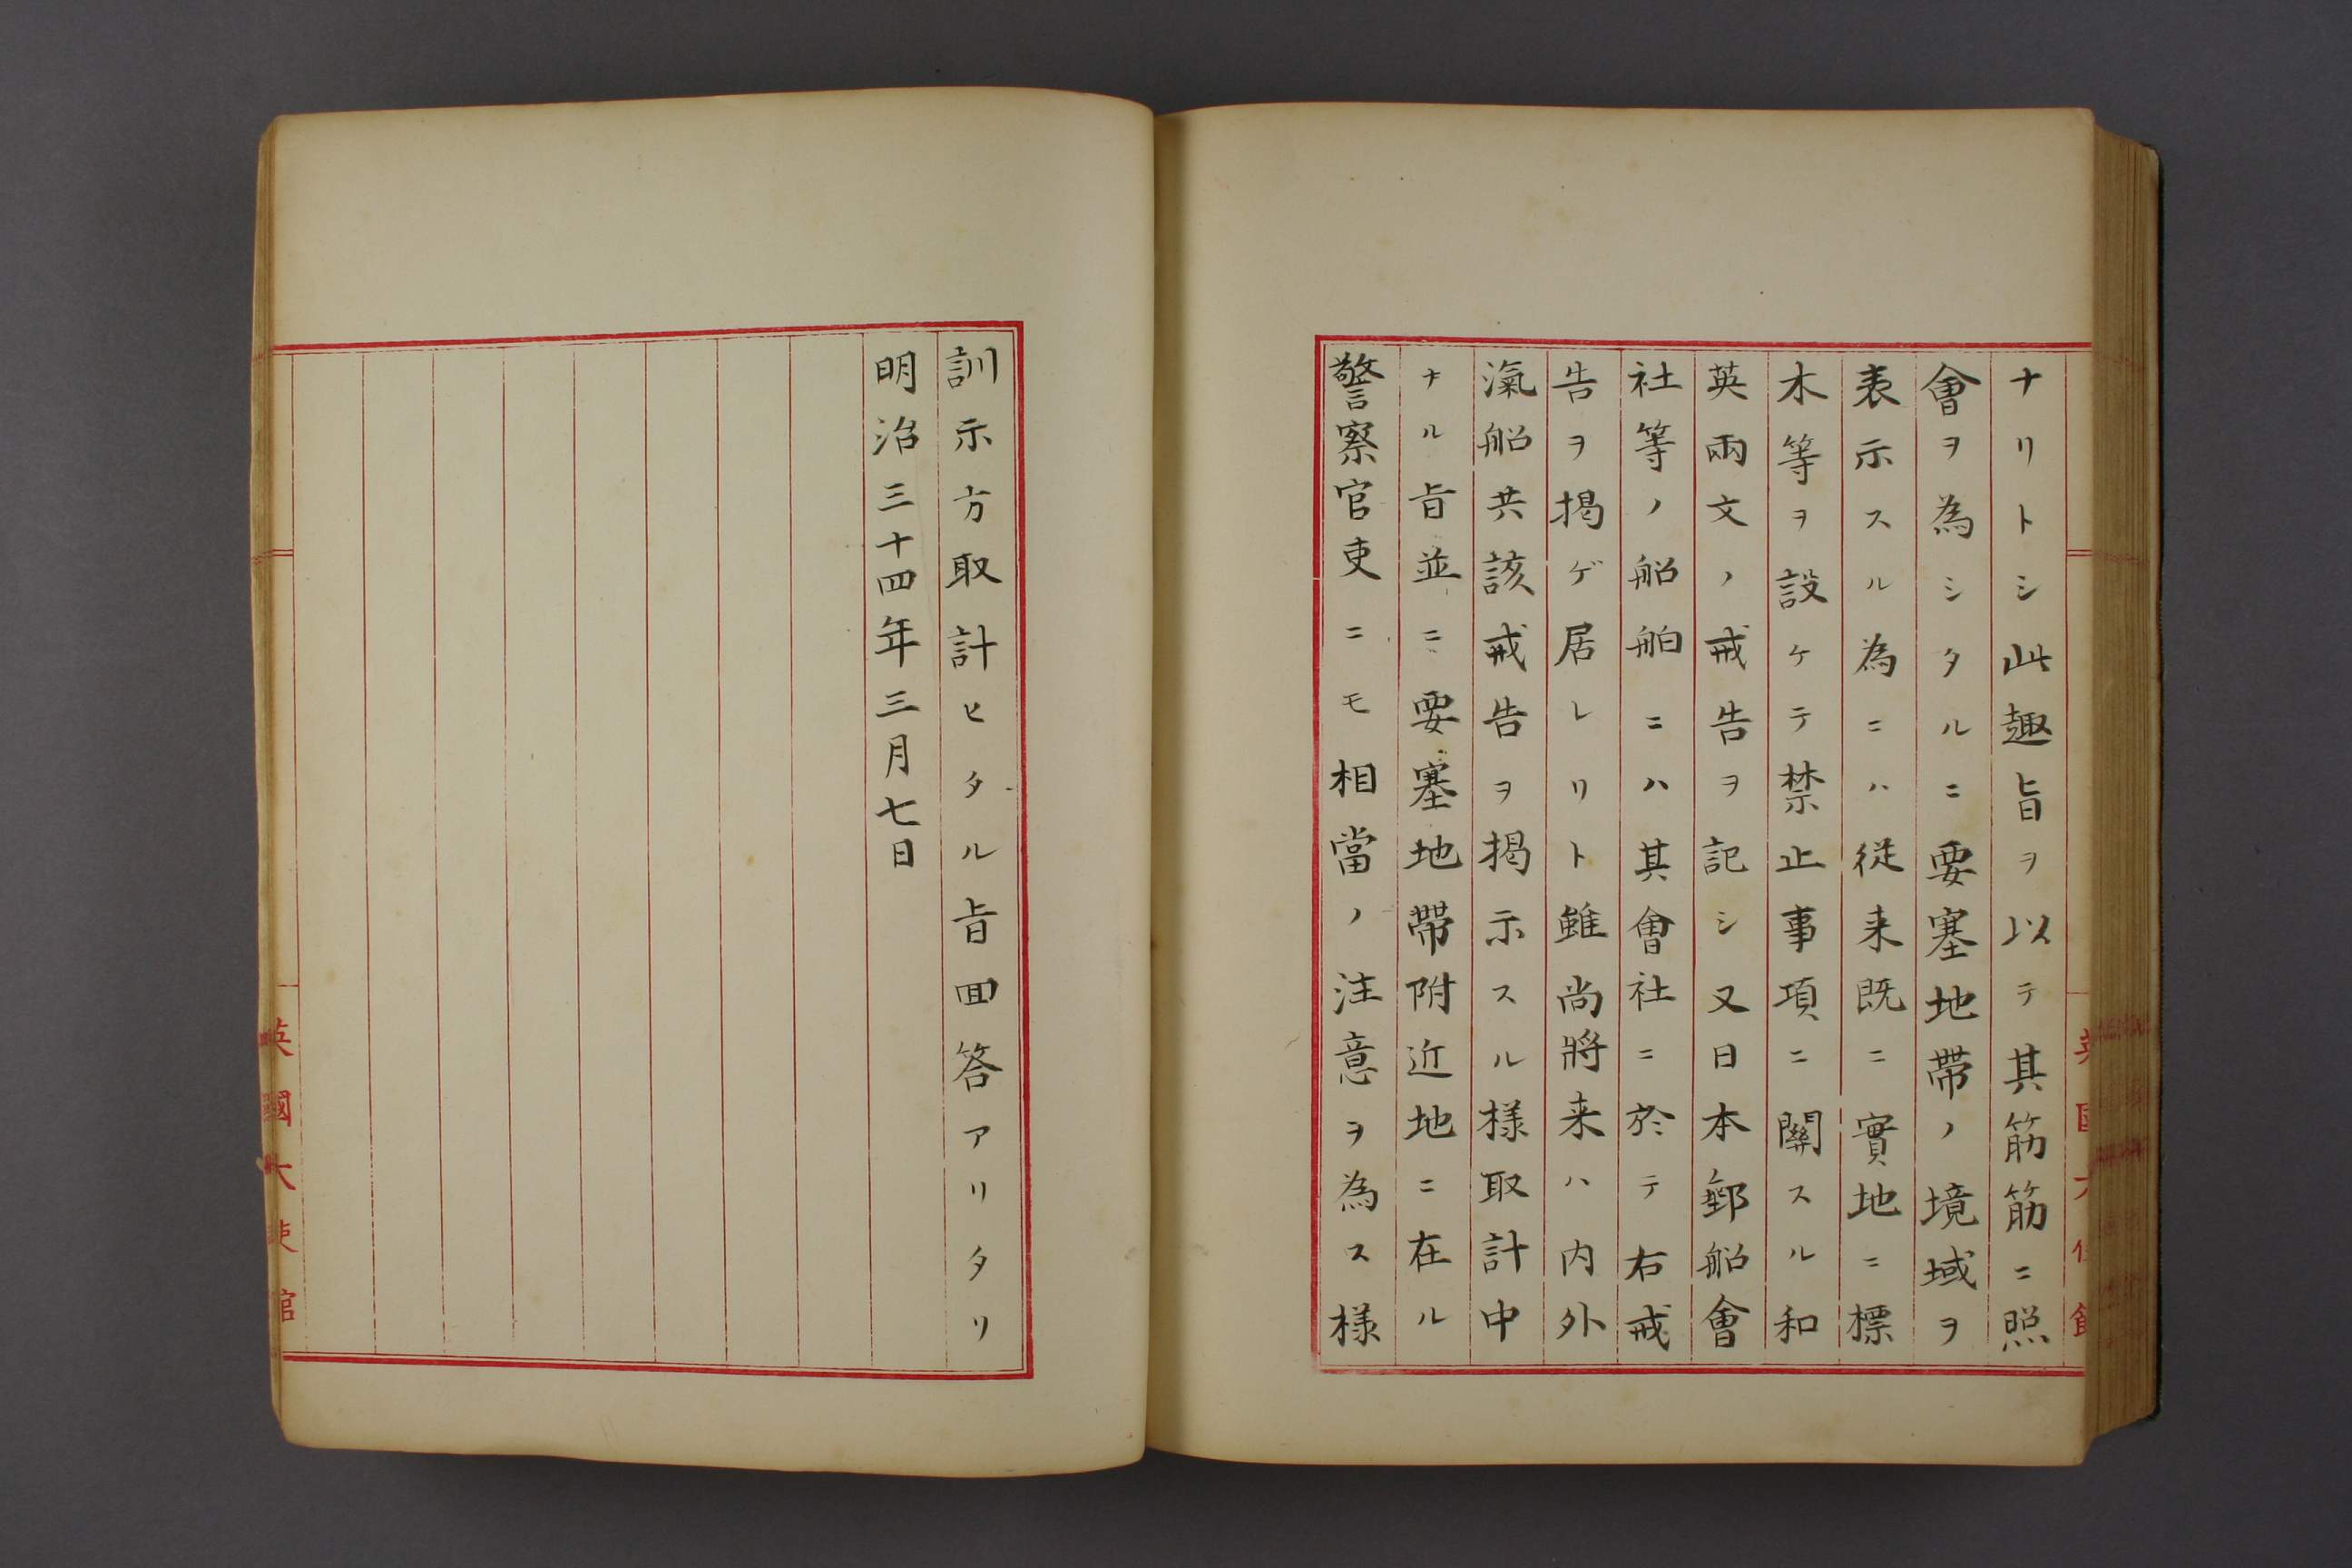 ナリトシ此趣旨ヲ以テ其筋筋ニ照
會ヲ為シタルニ要塞地帶ノ境域ヲ
表示スル為ニハ従来既ニ實地ニ標
木等ヲ設ケテ禁止事項ニ關スル和
英兩文ノ戒告ヲ記シ又日本郵船會
社等ノ船舶ニハ其會社ニ於テ右戒
告ヲ掲ゲ居レリト雖尚將来ハ内外
滊船共該戒告ヲ掲示スル様取計中
ナル旨並ニ要塞地帶附近地ニ在ル
警察官吏ニモ相當ノ注意ヲ為ス様
訓示方取計ヒタル旨回答アリタリ
明治三十四年三月七日
英國大使館